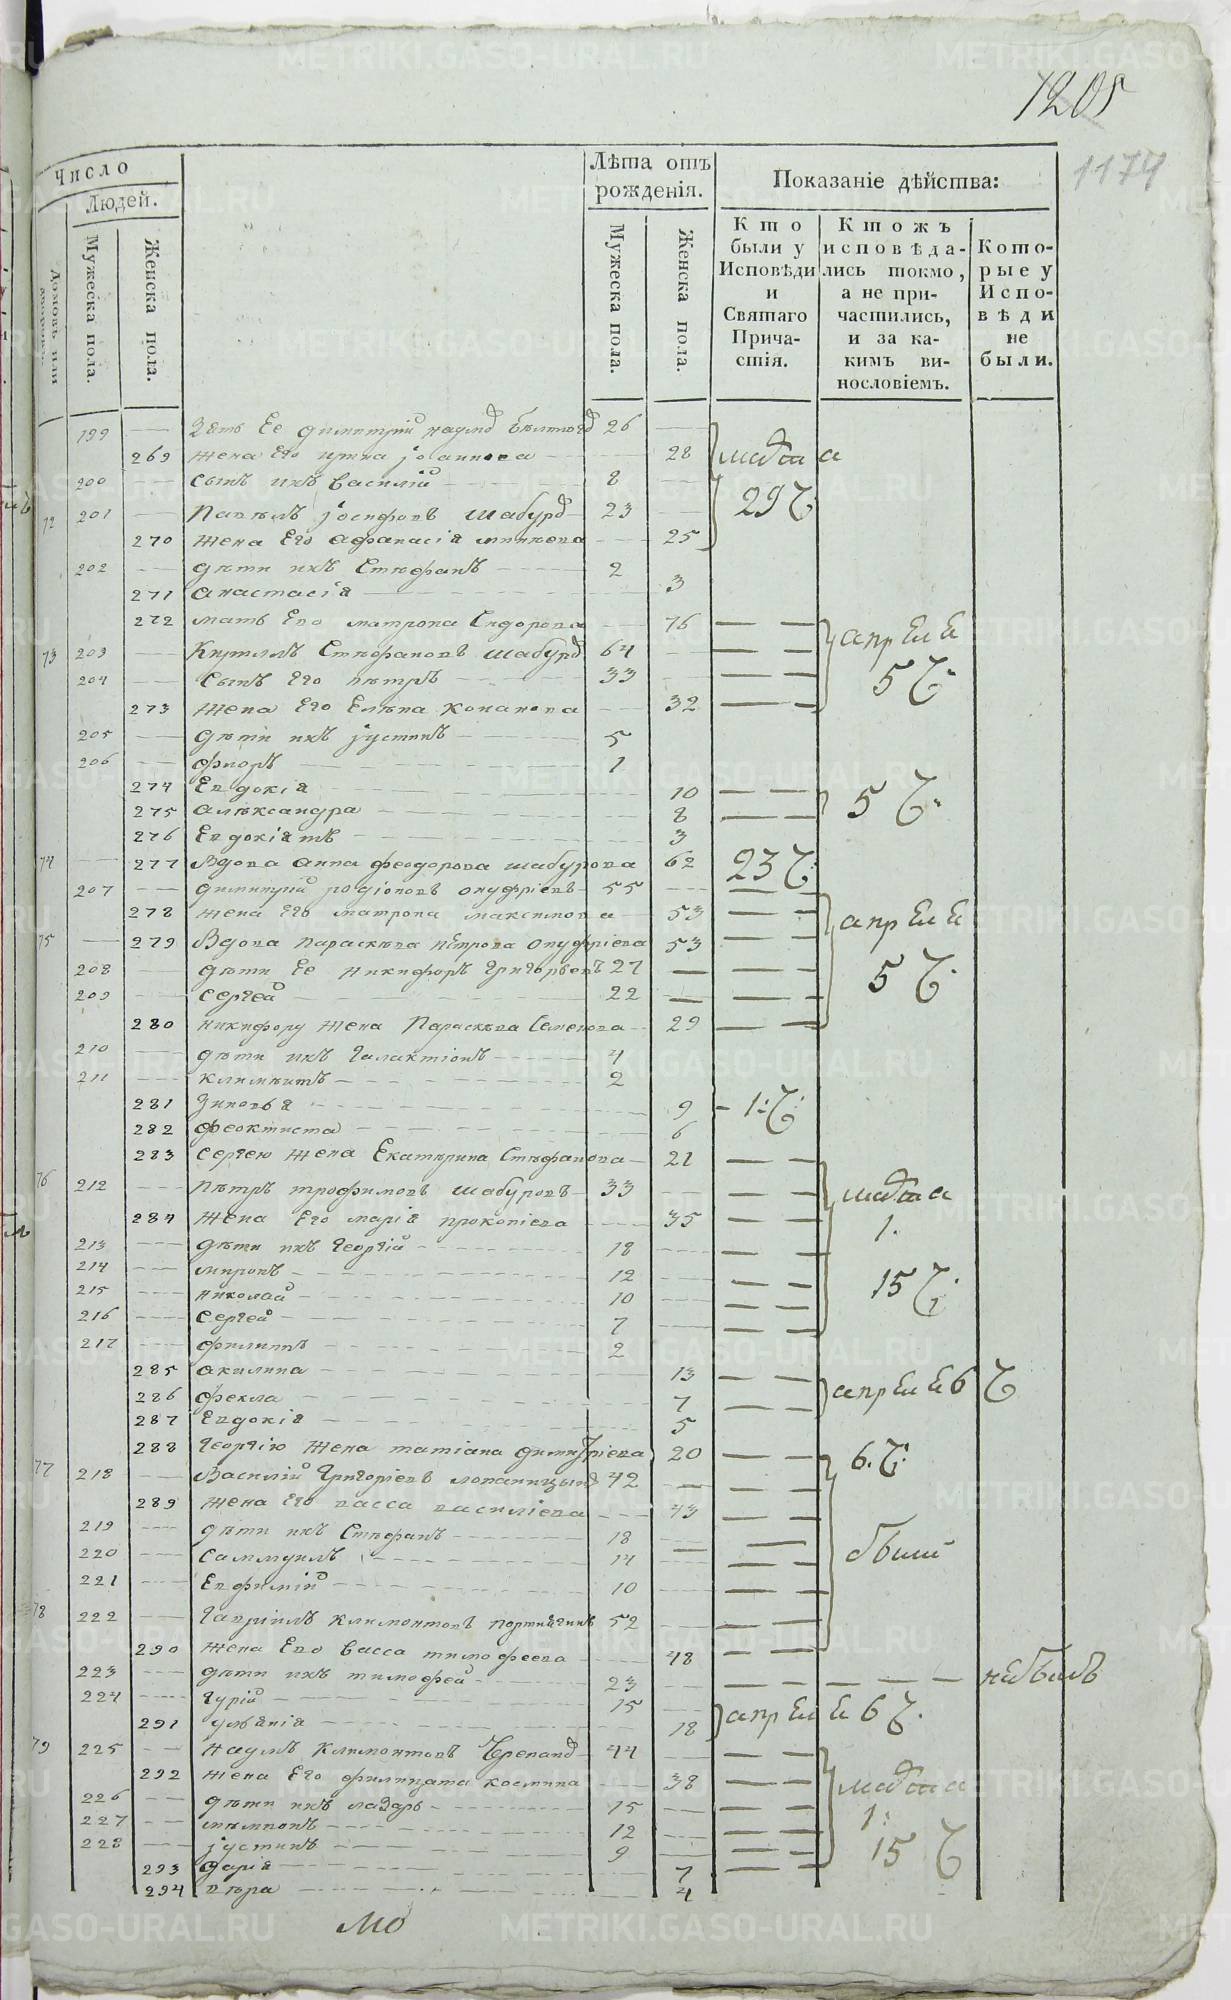 1205
1174
Число
Лѣта отъ рожденія.
Показаніе дѣйства:
Людей.
Домовъ или
Мужеска пола.
Женска пола.
Мужеска пола.
Женска пола.
Кто были у Исповѣди и Святаго Причастія.
Ктожъ исповѣдались токмо, а не причастились, и за какимъ винословіемъ.
Которые у Исповѣди не были.
199 Зять Ее димитрий наумов 26
269 жена Его ирина іоаннова 28 марта
200 сынъ ихъ василій 8 29 Ч:
72 201 Павелъ іосифовъ шабуров 23
270 жена Его афанасія 25
202 дѣти ихъ Стефанъ 2
271 анастасія 3
272 мать Его матрона Сидорова 76
73 203 Кириллъ Стефановъ шабуров 64 апреля
204 сынъ Его петръ 33 5 Ч.
273 жена Его Елена кононова 32
205 дѣти ихъ іустинъ 5
206 флоръ 1
274 Евдокія 10 5 Ч.
275 александра 8
276 Евдокія тъ 3
74 277 вдова анна феодорова шабурова 62 23 Ч:
207 димитрий родіоновъ онуфріевъ 55
278 жена Его матрона максимова 53 апреля
75 279 Вдова параскева петрова онуфріева 53
208 дѣти Ее никифоръ григорьевъ 27 5 Ч.
209 сергей 22
280 никифору жена Параскева Семенова 29
210 дѣти ихъ галактіонъ 4
211 климентъ 2
281 Зиновья 9 1: Ч:
282 феоктиста 6
283 сергею жена Екатерина Стефанова 21
76 212 петръ трофимовъ шабуровъ 33 марта
284 жена Его марія прокопіева 35 1.
213 дѣти ихъ георгій 18
214 миронъ 12 15 Ч.
215 николай 10
216 сергей 7
217 филиппъ 2
285 акилина 13
286 фекла 7 апреля 6 Ч
287 Евдокія 5
288 георгію жена татіана димитріева 20 6. Ч:
77 218 Василій григоріевъ 42
289 жена Его васса василіева 43
219 дѣти ихъ Стефанъ 18
220 самуилъ 14 были
221 Евфимій 10
78 222 гавріилъ климонтовъ 52
290 жена Его васса тимофеева 48
223 дѣти ихъ тимофей 23 небылъ
224 гурій 15
291 уліянія 18 апреля 6 Ч.
79 225 наумъ климонтовъ Черепанов 44
292 жена Его филицата космина 38 марта
226 дѣти ихъ лазарь 15 1:
227 12
228 іустинъ 9 15 Ч
293 дарія 7
294 вера 4
Мо